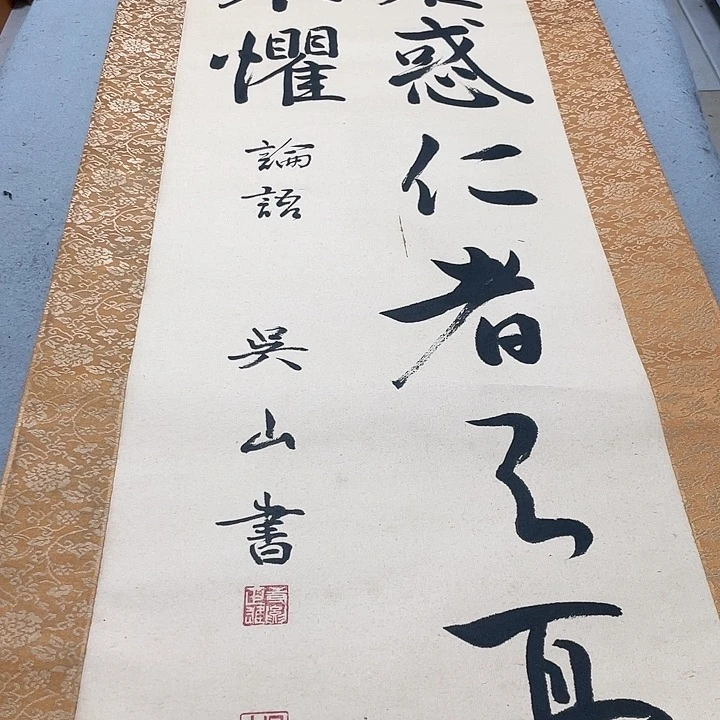 惑仁者不
懼
論語
吳山書